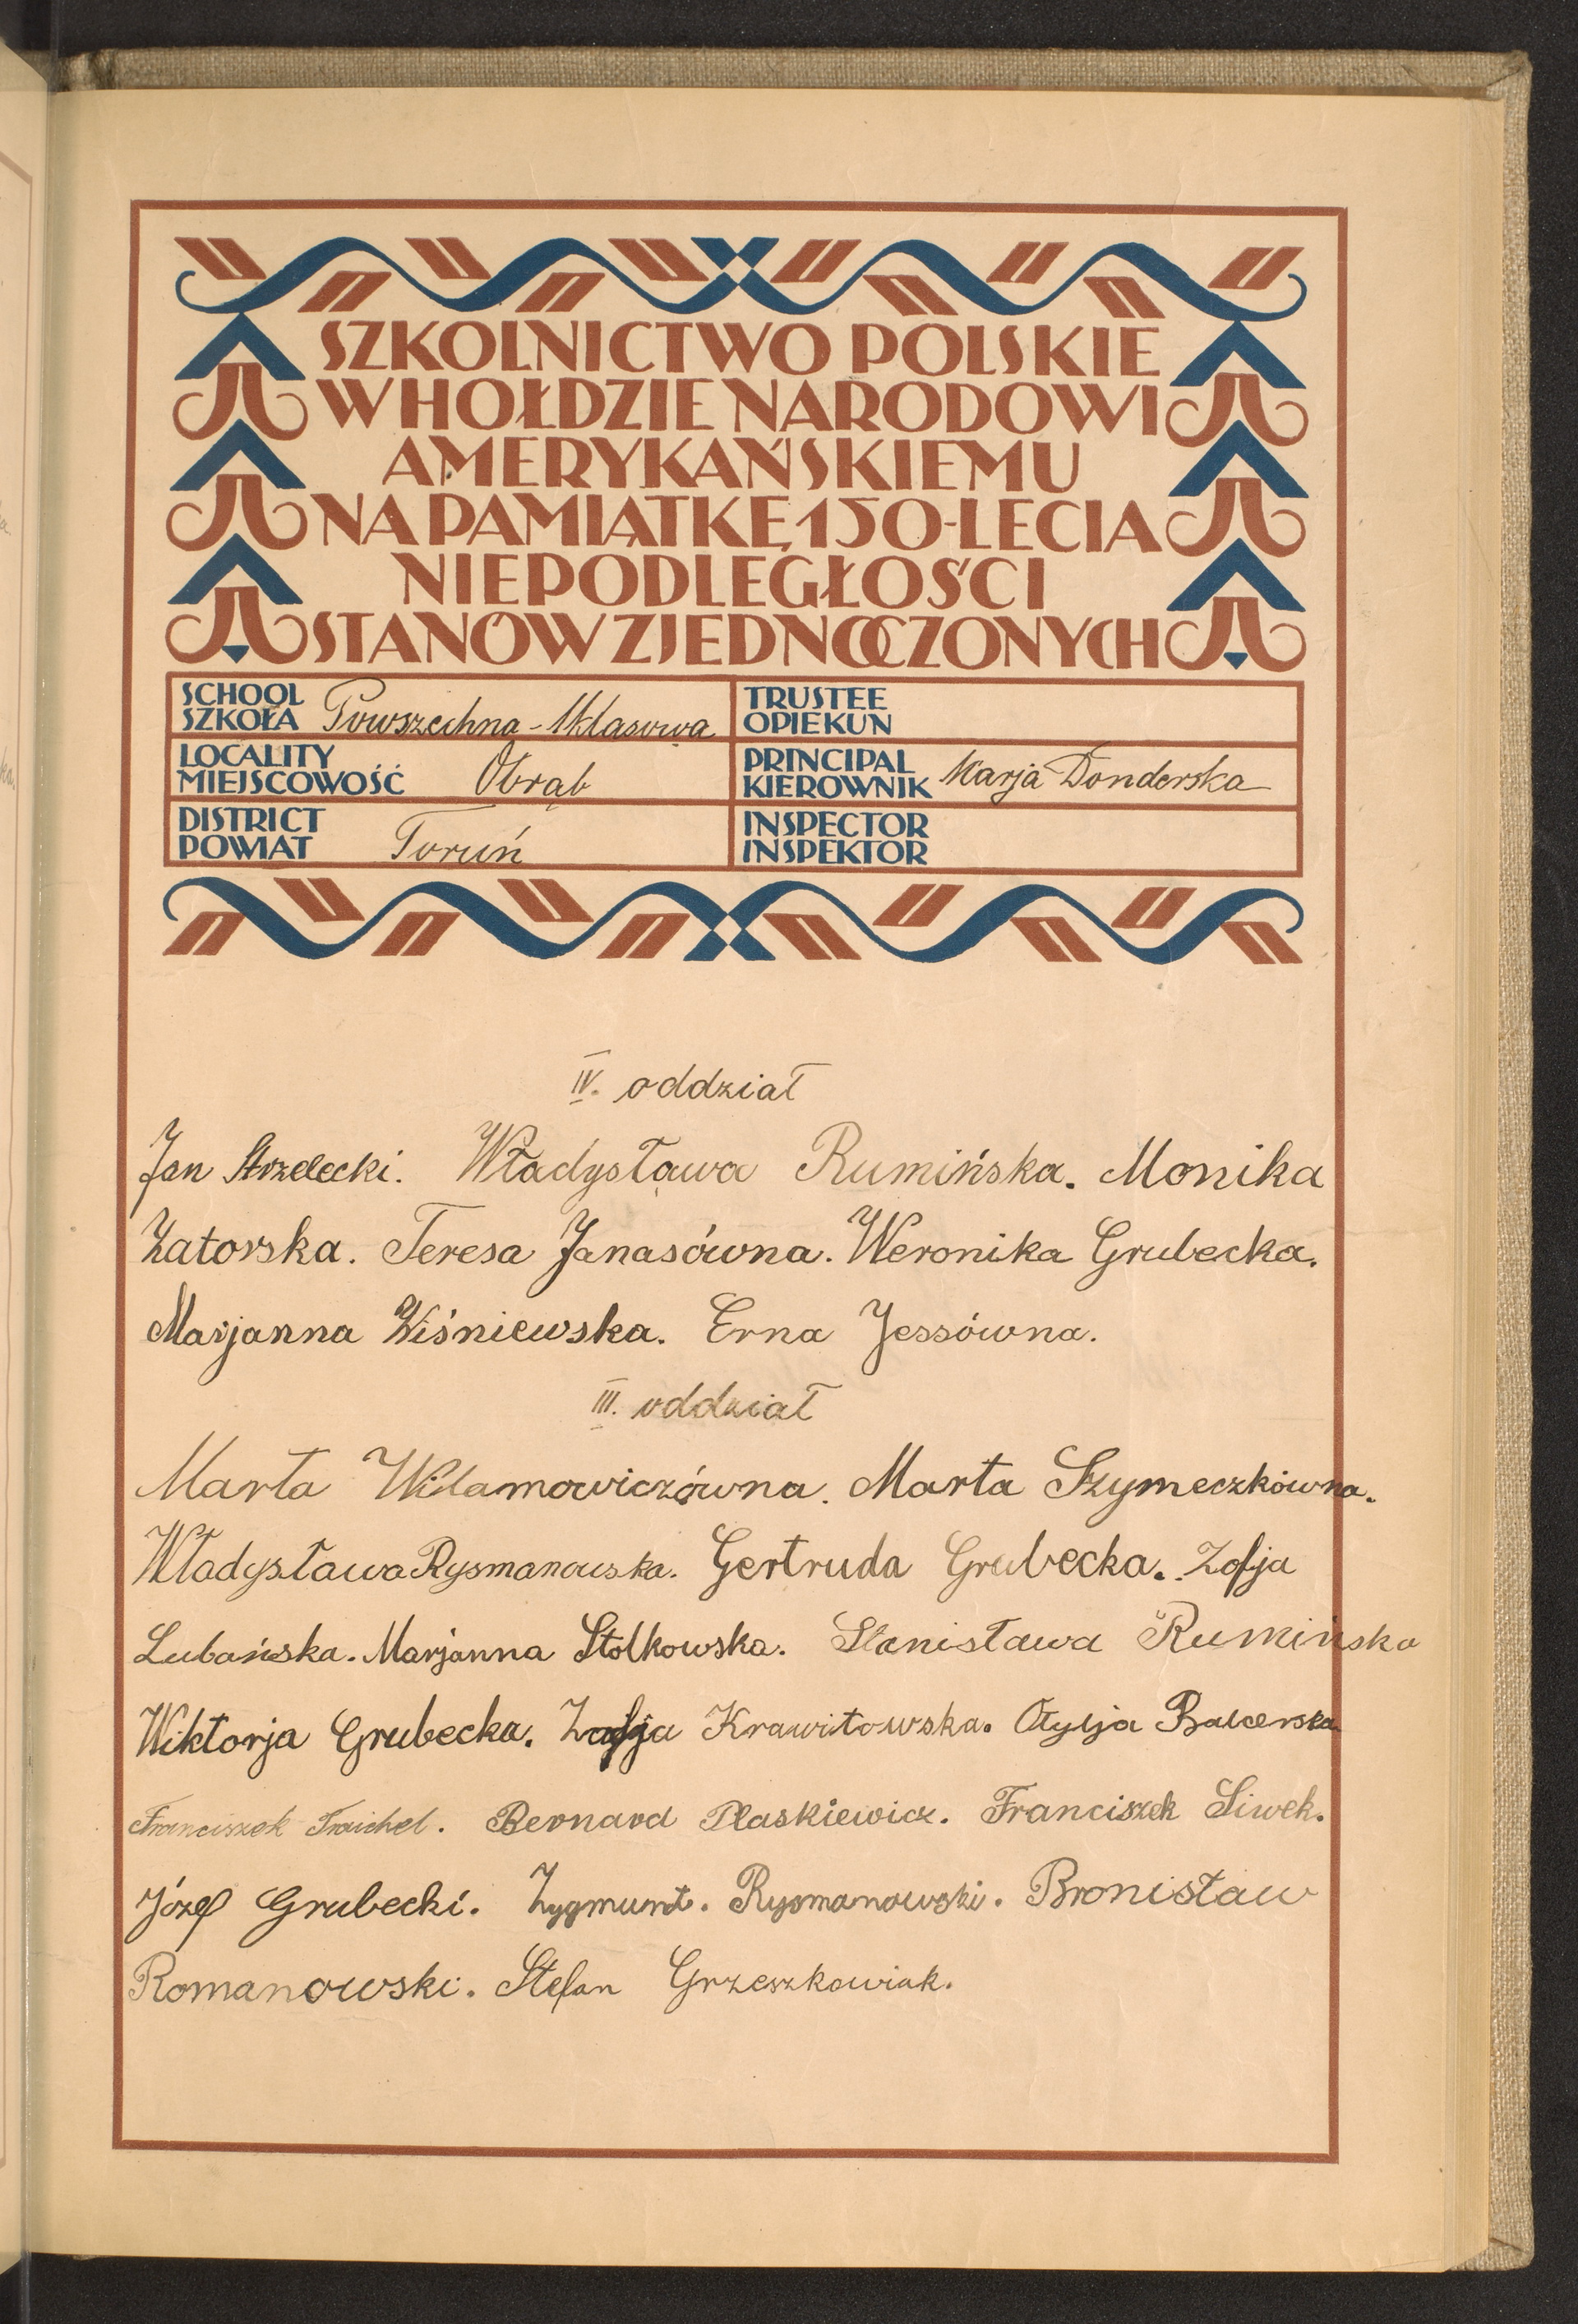 SZKOLNICTWO POLSKIE
W HOŁDZIE NARODOWI
AMERYKAŃSKIEMU
NA PAMIĄTKĘ 150-LECIA
NIEPODLEGŁOŚCI
STANÓW ZJEDNOCZONYCH
SCHOOL
SZKOŁA Powszechna - 1klasowa
TRUSTEE
OPIEKUN
LOCALITY
MIEJSCOWOŚĆ Obrąb
PRINCIPAL
KIEROWNIK Marja Donderska
DISTRICT
POWIAT Toruń
INSPECTOR
INSPEKTOR
IV. oddział
Jan Strzelecki. Władysława Rumińska. Monika
Zatorska. Teresa Janasówna. Weronika Grubecka.
Marjanna Wiśniewska. Erna Jessówna.
III. oddział
Marta Widamowiczówna. Marta Szymeczkówna.
Władysława Rysmanowska. Gertruda Grubecka. Zofja
Lubańska. Marjanna Stolkowska. Stanisława Rumińska
Wiktorja Grubecka. Zofja Krawitowska. Otylja Balcerska
Franciszek Traichel. Bernard Plaskiewicz. Franciszek Siwek.
Józef Grubecki. Zygmunt. Rysmanowski. Bronisław
Romanowski. Stefan Grzeszkowiak.